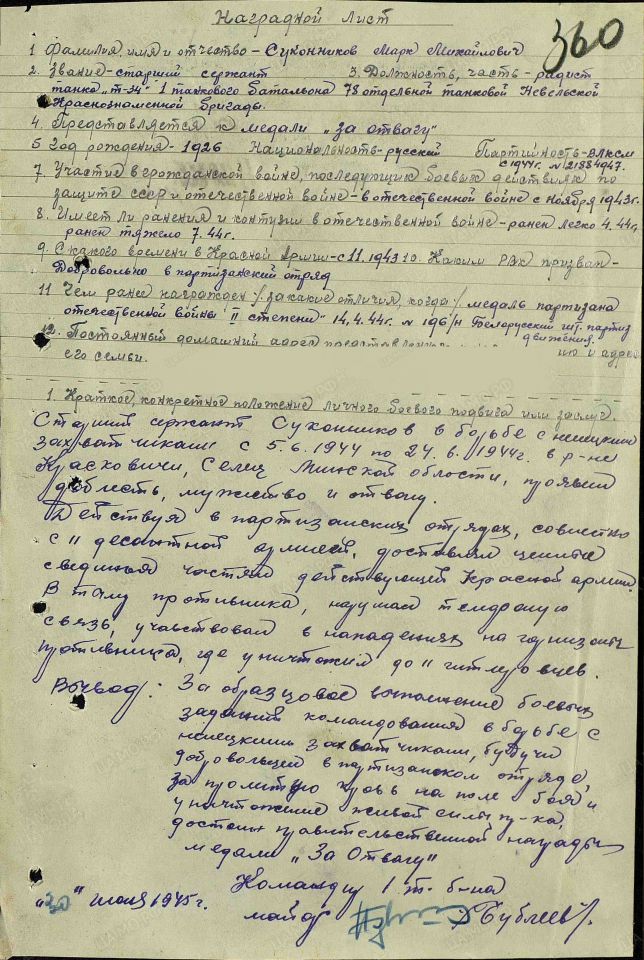 Наградной Лист
360
1 Фамилия, имя и отчество – Суконников Марк Михайлович
2. Звание – старший сержант 3. Должность, часть – радист
танка „т-34" 1 танкового батальона 78 отдельной танковой Невельской
Краснознаменной бригады.
4. Представляется к медали „за отвагу"
5 Год рождения – 1926 Национальность – русский Партийность – ВЛКСМ
с 1944г. N 21884947.
7. Участие в гражданской войне, последующих боевых действиях по
защите ссср и отечественной войне – в отечественной войне с ноября 1943г.
8. Имеет ли ранения и контузии в отечественной войне – ранен легко 4.44г.
ранен тяжело 7.44г.
9. С какого времени в Красной Армии – с 11.1943 10. Каким РВК призван –
Добровольно в партизанский отряд
11 Чем ранее награжден /за какие отличия, когда/ медаль партизана
отечественной войны „II степени" 14.4.44г. N 196/н Белорусский шт. партиз
движения.
12. Постоянный домашний адрес
его семьи.
1. Краткое, конкретное положение личного боевого подвига или заслуг.
Старший сержант Суконников в борьбе с немецкими
захватчиками с 5.6.1944 по 24.6.1944г. в р-не
Красковичи, Селец Минской области, проявил
доблесть, мужество и отвагу.
Действуя в партизанских отрядах, совместно
с 11 десантной армией, доставлял ценные
сведения частям действующей Красной армии.
В тылу противника, нарушал телефонную
связь, участвовал в нападениях на гарнизоны
противника, где уничтожил до 11 гитлеровцев.
Вывод: За образцовое выполнение боевых
заданий командования в борьбе с
немецкими захватчиками, будучи
добровольцем в партизанском отряде,
за пролитую кровь на поле боя и
уничтожение живой силы пр-ка,
достоин правительственной награды
медали „За Отвагу"
Командир 1 т. б-на
„30" 1945г. майор /Бублеев/.